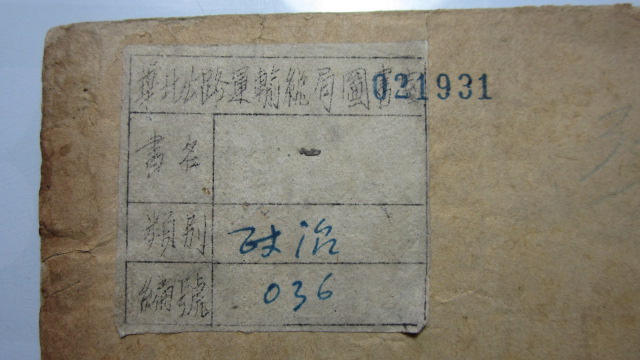 華北公路運輸總局圖書 021931
書名
類別 政治
編號 036